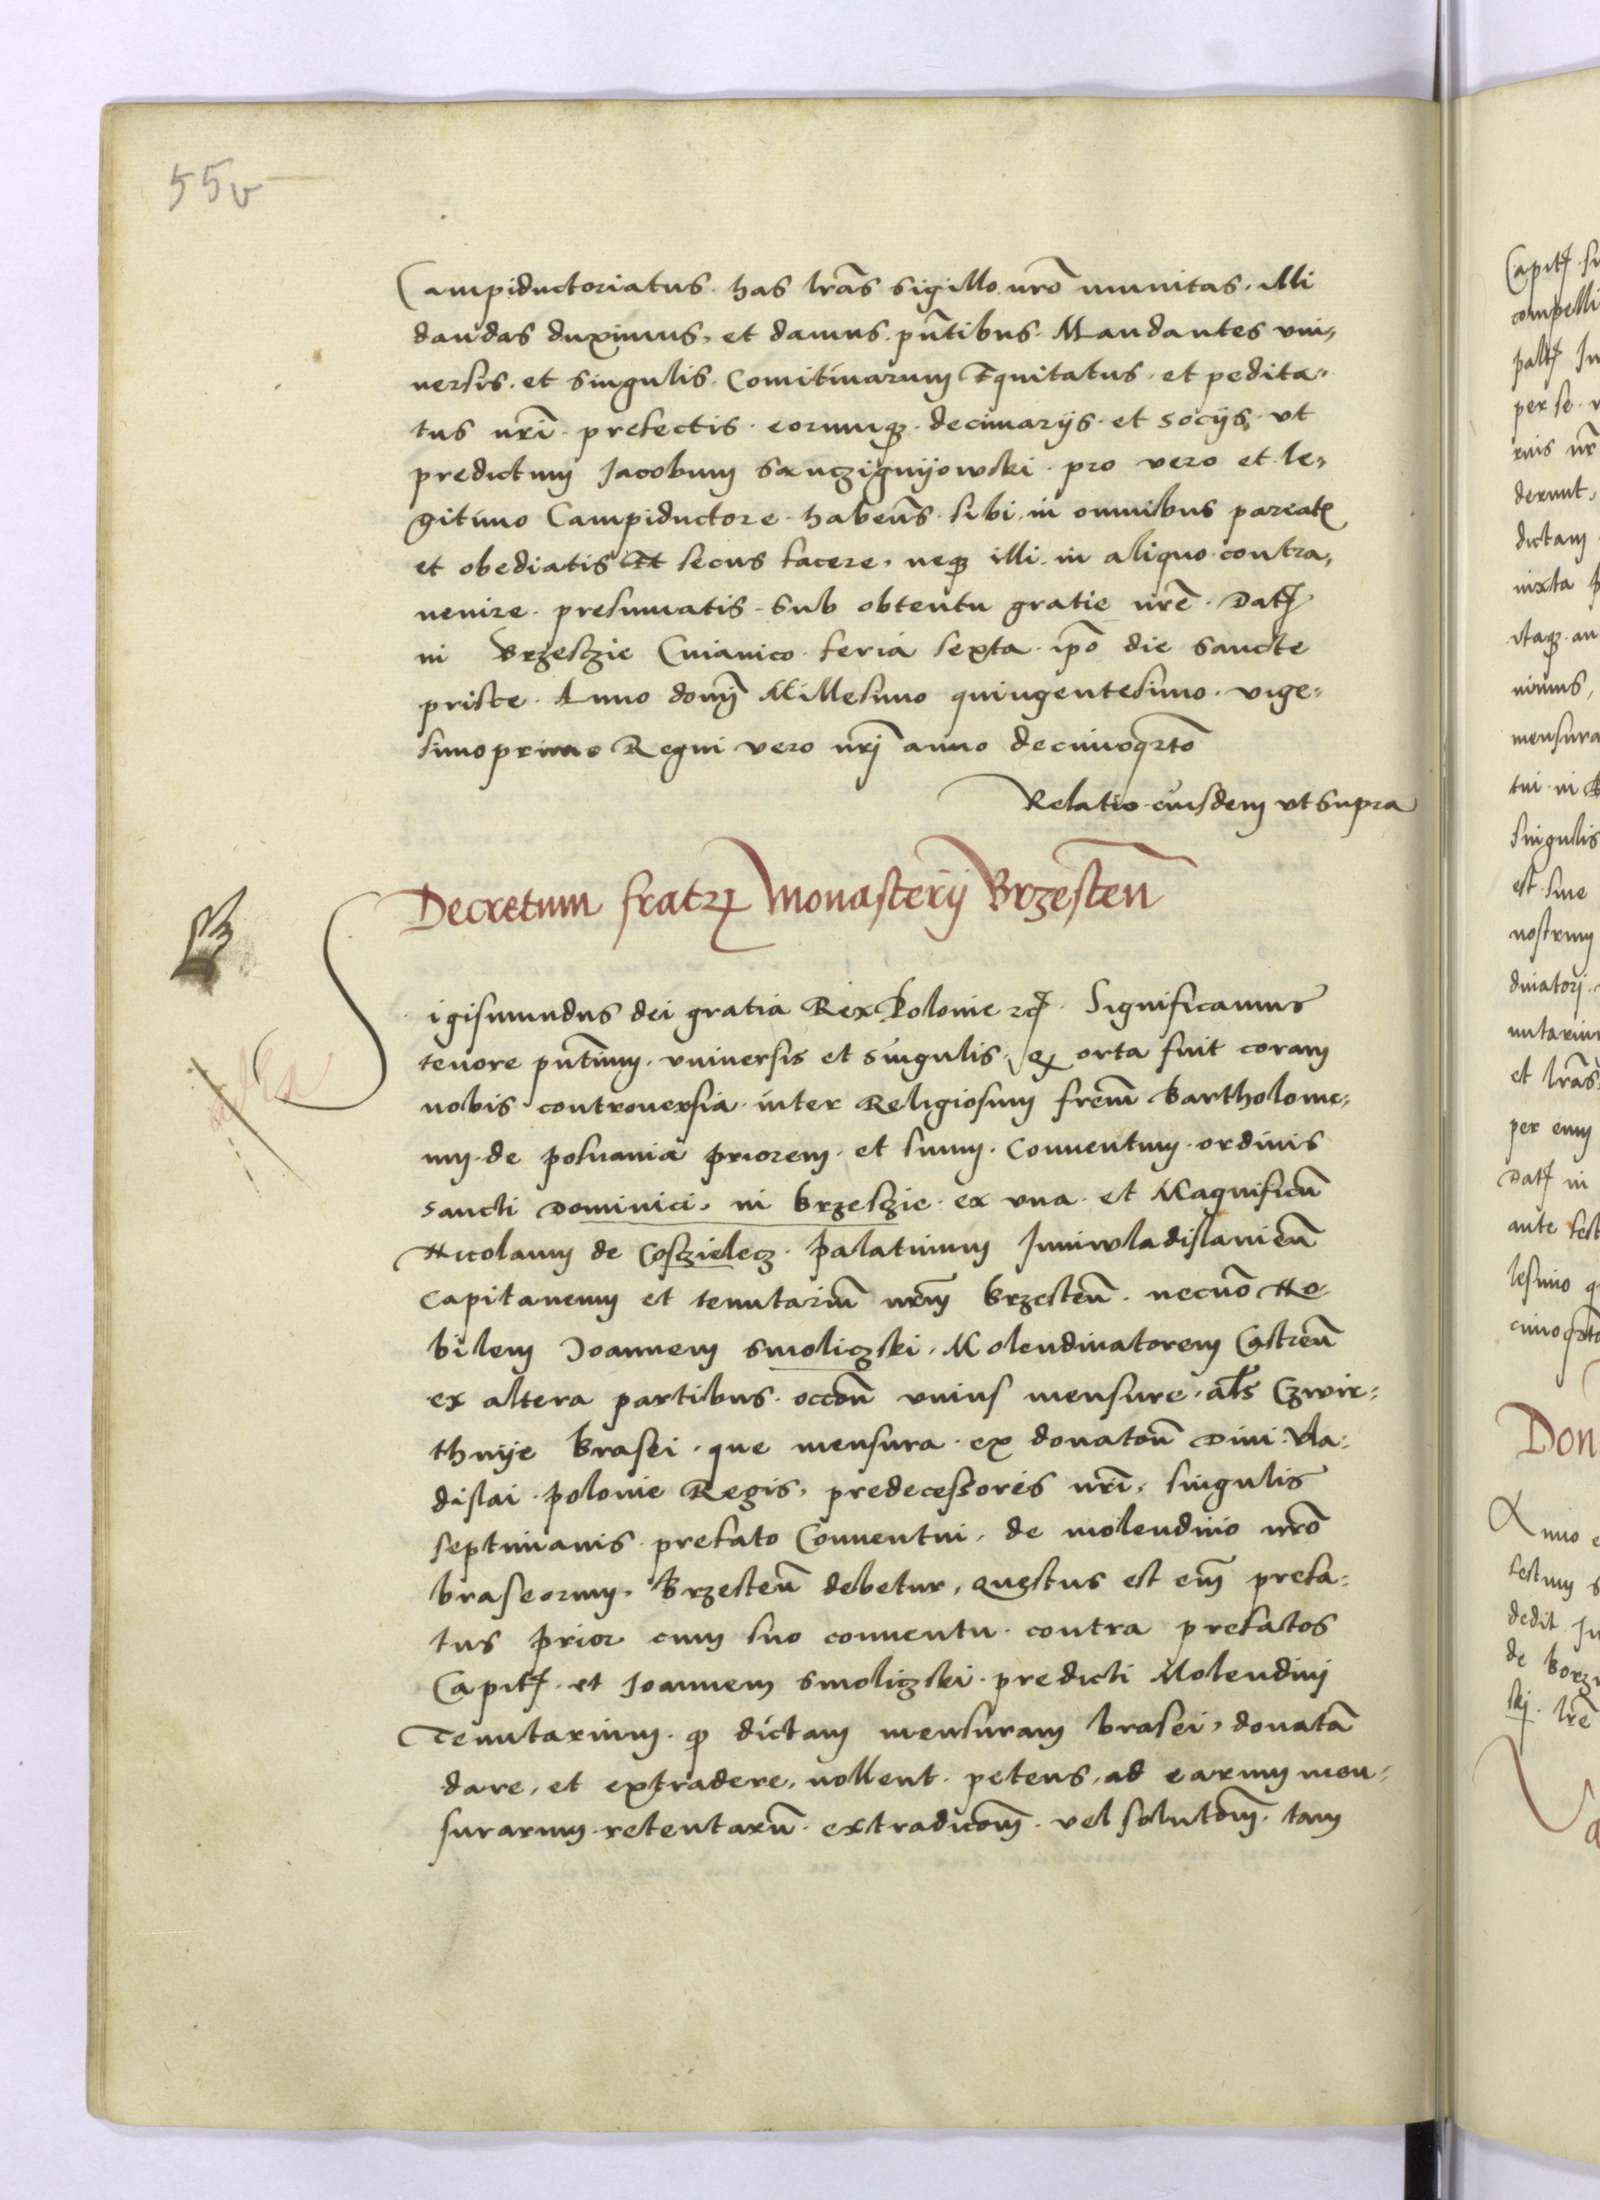 55v
Campiductoriatus. has lrãs sigillo. nrõ munitas. illi
dandas duximus, et damus. pñtibus. Mandantes vni,
uersis. et singulis. Comitiuarum Equitatus. et pedita-
tus nrĩ. prefectis. eorumqꝫ. decimarijs. et socijs, vt
predictum Jacobum Sanczignijowski. pro vero et le,
gitimo Campiductore. habeñs. sibi. in omnibus pareatꝭ
et obediatis. secus facere, neqꝫ illi in aliquo contra,
uenire. presumatis. sub obtentu gratie nrẽ. Datꝭ
in Brzesczie Cuianico. feria sexta. ipõ die Sancte
prisce. Anno domĩ Millesimo quingentesimo. vige-
simoprimo Regni vero nrĩ anno decimoqrto
Relatio eiusdem vt supra
Decretum fratrꝝ Monasterij Brzesteñ
Sigismundus dei gratia Rex Polonie ꝛcꝭ. Significamus
tenore pñtium. vniuersis et singulis. qꝫ orta fuit coram
nobis controuersia. inter Religiosum frem̃ Bartholome,
um. de posnania priorem. et suum. Conuentum. ordinis
sancti Dominici. in Brzesczie. ex vna. et Magnificũ
Nicolaum de Cosczielecz. palatinum Juniwladislauieñ
Capitaneum et tenutariũ nrm̃ Brzesteñ. necnõ No-
bilem Joannem Smoliczski. Molendinatorem Castreñ
ex altera partibus. occoñ vnius mensure. als̃ Czwir-
thnije Brasei. que mensura. ex donatoñ Diui. Vla-
dislai. polonie Regis, predecessoris nrĩ, singulis
septimanis. prefato Conuentui. de molendino nrõ
braseorum. Brzesteñ debetur, questus est em̃ prefa-
tus prior cum suo conuentu. contra prefatos
Capitꝭ. et Joannem Smoliczski. predicti Molendini
Tenutarium. ꝙ dictam mensuram brasei, donatã
dare, et extradere, nollent. petens, ad earum men-
surarum. retentarũ. extradicom̃. vel solutom̃. tam